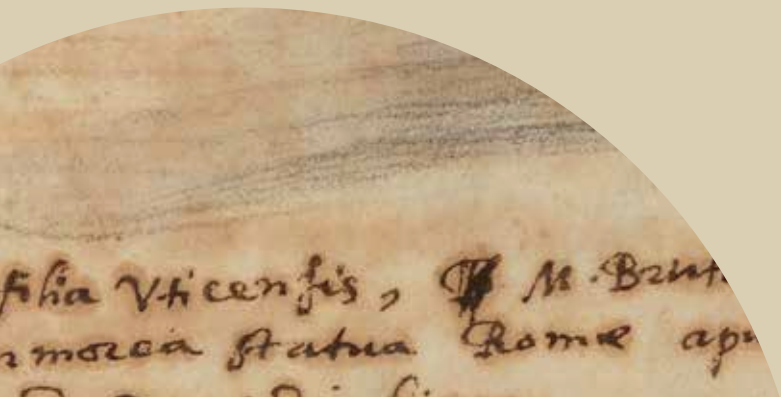 filia Vticensis, M. Brut
rmorea statua Romæ apu